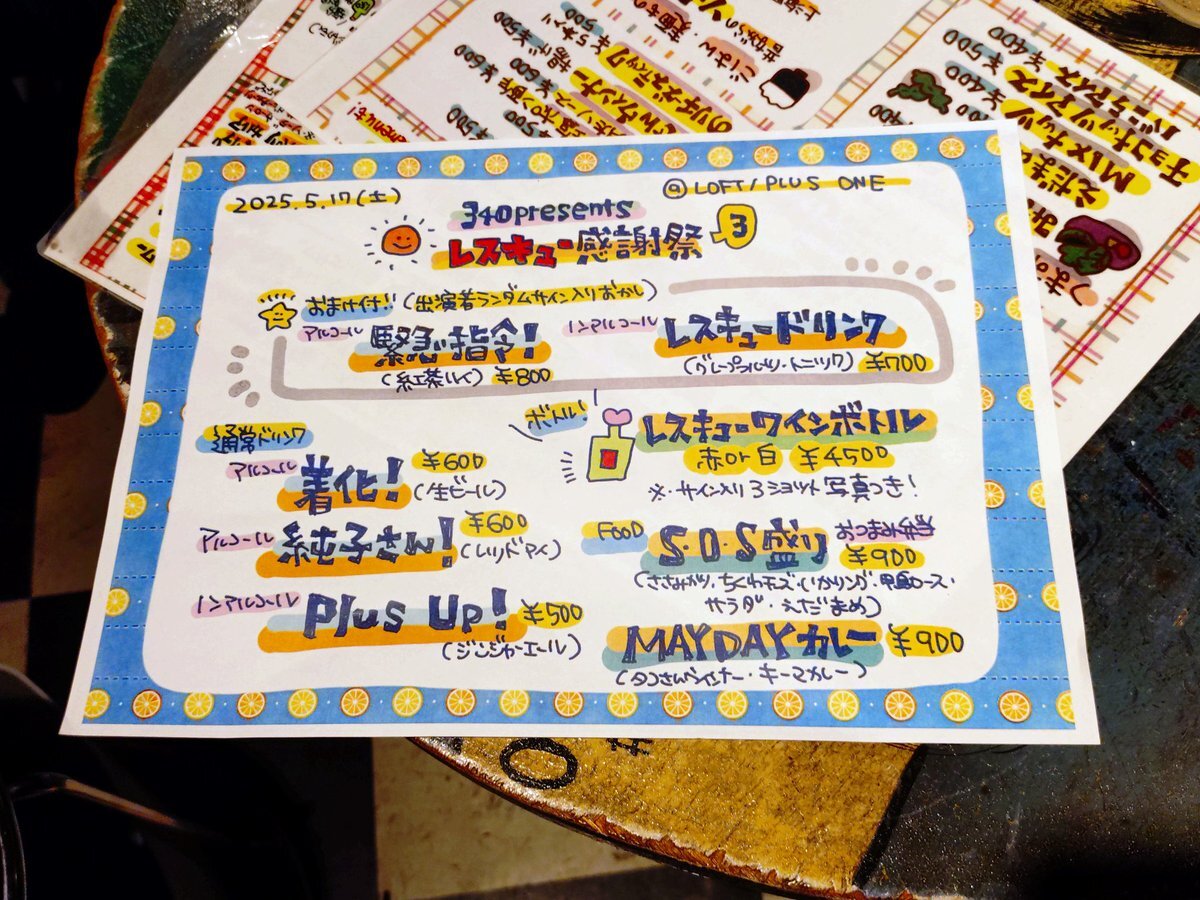 2025.5.17(土)
@LOFT/PLUS ONE
340presents
レスキュー感謝祭3
おまけ付!!(出演者ランダムサイン入りおかし)
アルコール
緊急指令!
(紅茶ハイ) ¥800
ノンアルコール
レスキュードリンク
(グレープフルーツ・トニック) ¥700
通常ドリンク
アルコール
着化! ¥600
(生ビール)
アルコール
純子さん! ¥600
(レッドアイ)
ノンアルコール
Plus Up! ¥500
(ジンジャーエール)
ボトル
レスキューワインボトル
赤or白 ¥4500
※・サイン入り3ショット写真つき!
FOOD
S・O・S盛り
おつまみ弁当
¥900
(ささみカツ・ちくわチーズ・いかリング・甲豚ロース・
サラダ・えだまめ)
MAYDAYカレー ¥900
(タコさんウインナー・キーマカレー)
チョコナッツアイス
バニラアイス
¥400
¥500
MIXナッツ
えだまめ
¥400
ごはん
¥500
¥500
¥600